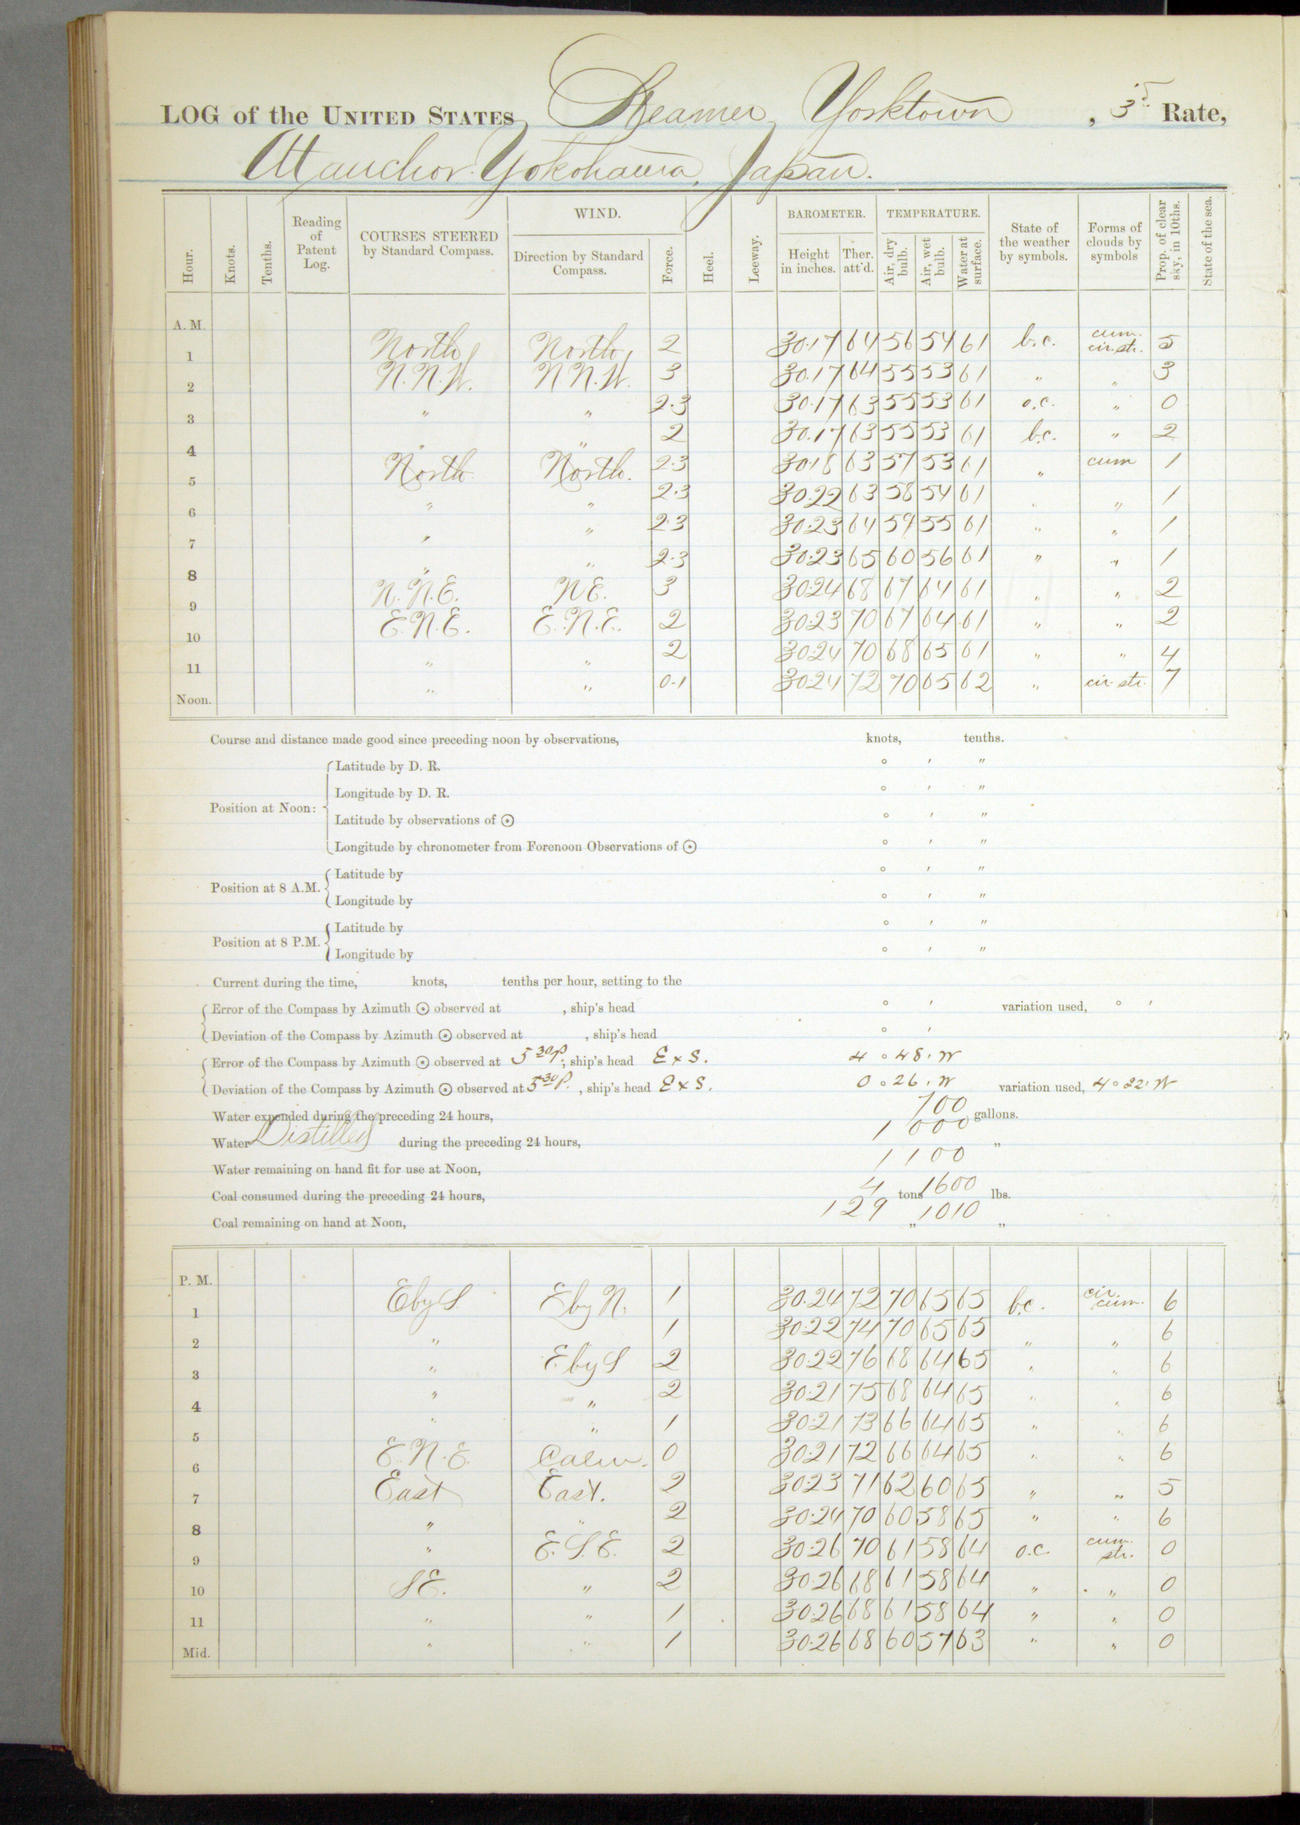 LOG of the UNITED STATES Steamer Yorktown, 3rd Rate,
At anchor Yokohama, Japan.
Hour. Knots. Tenths. Reading of Patent Log. COURSES STEERED by Standard Compass. WIND. Direction by Standard Compass. Force. Heel. Leeway. BAROMETER. Height in inches. Ther. att'd. TEMPERATURE. Air, dry bulb. Air, wet bulb. Water at surface. State of the weather by symbols. Forms of clouds by symbols Prop. of clear sky, in 10ths. State of the sea.
A. M.
1 North North 2 30.17 64 56 54 61 b.c. cum. cir. str. 5
2 N.N.W. N N.W. 3 30.17 64 55 53 61 " " 3
3 " " 2.3 30.17 63 55 53 61 o.c. " 0
4 " " 2 30.17 63 55 53 61 b.c. " 2
5 North North. 2.3 30.18 63 57 53 61 " cum 1
6 " " 2.3 30.22 63 58 54 61 " " 1
7 " " 2.3 30.23 64 59 55 61 " " 1
8 " " 2.3 30.23 65 60 56 61 " " 1
9 N.N.E. NE. 3 30.24 68 67 64 61 " " 2
10 E.N.E. E.N.E. 2 30.23 70 67 64 61 " " 2
11 " " 2 30.24 70 68 65 61 " " 4
Noon. " " 0.1 30.24 72 70 65 62 " cir. str. 7
Course and distance made good since preceding noon by observations, knots, tenths.
Position at Noon: Latitude by D. R. ° ′ ″
Longitude by D. R. ° ′ ″
Latitude by observations of ☉ ° ′ ″
Longitude by chronometer from Forenoon Observations of ☉ ° ′ ″
Position at 8 A.M. Latitude by ° ′ ″
Longitude by ° ′ ″
Position at 8 P.M. Latitude by ° ′ ″
Longitude by ° ′ ″
Current during the time, knots, tenths per hour, setting to the
Error of the Compass by Azimuth ☉ observed at , ship's head ° ′ variation used, ° ′
Deviation of the Compass by Azimuth ☉ observed at , ship's head ° ′
Error of the Compass by Azimuth ☉ observed at 5 30 p., ship's head E x S. 4 ° 48 ′ W
Deviation of the Compass by Azimuth ☉ observed at 5 30 P. , ship's head E x S. 0 ° 26 ′ W variation used, 4 ° 22 ′ W
Water expended during the preceding 24 hours, 700 gallons.
Water Distilled during the preceding 24 hours, 1000 "
Water remaining on hand fit for use at Noon, 1100
Coal consumed during the preceding 24 hours, 4 tons 1600 lbs.
Coal remaining on hand at Noon, 129 " 1010 "
P. M.
1 E by S E by N. 1 30.24 72 70 65 65 b.c. cir. cum. 6
2 " " 1 30.22 74 70 65 65 " " 6
3 " E by S 2 30.22 76 68 64 65 " " 6
4 " " 2 30.21 75 68 64 65 " " 6
5 " " 1 30.21 73 66 64 65 " " 6
6 E.N.E. Calm. 0 30.21 72 66 64 65 " " 6
7 East East. 2 30.23 71 62 60 65 " " 5
8 " " 2 30.24 70 60 58 65 " " 6
9 " E.S.E. 2 30.26 70 61 58 64 o.c. cum. str. 0
10 SE. " 2 30.26 68 61 58 64 " " 0
11 " " 1 30.26 68 61 58 64 " " 0
Mid. " " 1 30.26 68 60 57 63 " " 0